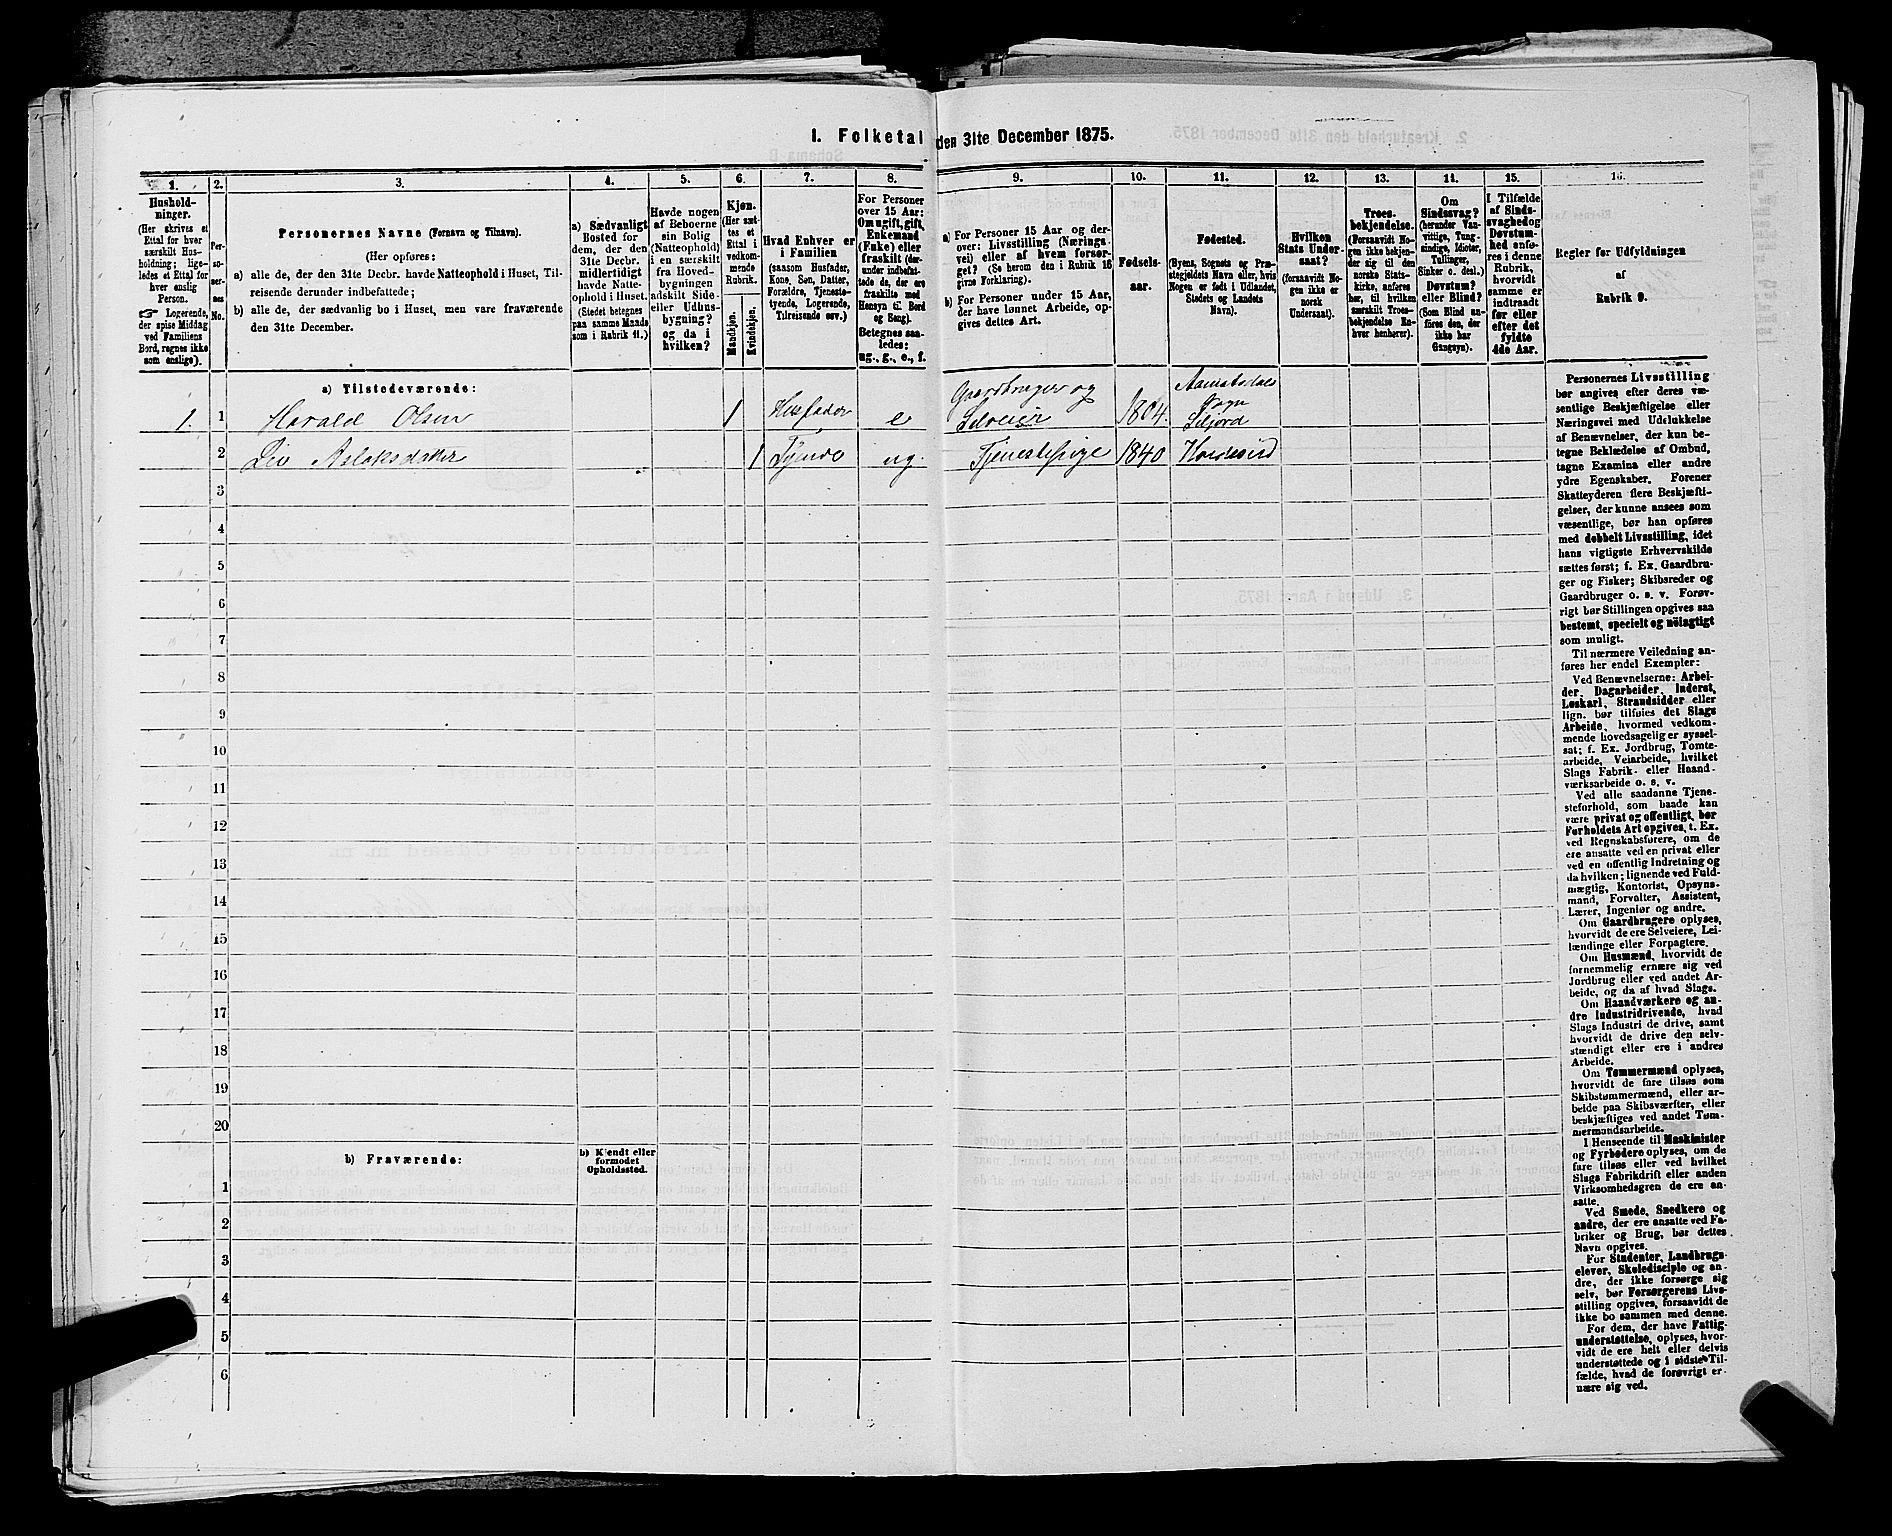 I. Folketal den 31te December 1875.
1.
Hushold-
ninger.
(Her skrives et
Ettal for hver
særskilt Hus-
holdning; lige-
ledes et Ettal for
hver enslig
Person.
☞ Logerende,
der spise Middag
ved Familiens
Bord, regnes ikke
som enslige).
2.
Per-
so-
ner-
nes
No.
3.
Personernes Navne (Fornavn og Tilnavn).
(Her opføres:
a) alle de, der den 31te Decbr. havde Natteophold i Huset, Til-
reisende derunder indbefattede;
b) alle de, der sædvanlig bo i Huset, men vare fraværende
den 31te December.
4.
a) Sædvanligt
Bosted for
dem, der den
31te Decbr.
midlertidigt
havde Natte-
ophold i Huset.
(Stedet betegnes
paa samme Maade
som i Rubrik 11.)
5.
Havde nogen
af Beboerne
sin Bolig
(Natteophold)
i en særskilt
fra Hoved-
bygningen
adskilt Side-
eller Udhus-
bygning?
og da i
hvilken?
6.
Kjøn.
(Her sæt-
tes et
Ettal i
vedkom-
mende
Rubrik.
Mandkjøn.
Kvindekjøn.
7.
Hvad Enhver er
i Familien
(saasom Husfader,
Kone, Søn, Datter,
Forældre, Tjeneste-
tyende, Logerende,
Tilreisende osv.)
8.
For Personer
over 15 Aar:
Om ugift, gift,
Enkemand
(Enke) eller
fraskilt (der-
under indbefat-
tede de, der ere
fraskilte med
Hensyn til Bord
og Seng).
Betegnes saa-
ledes:
ug., g., e., f.
9.
a) For Personer 15 Aar og der-
over: Livsstilling (Nærings-
vei) eller af hvem forsør-
get? (Se herom den i Rubrik 16
givne Forklaring).
b) For Personer under 15 Aar,
der have lønnet Arbeide, op-
gives dettes Art.
10.
Fødsels-
aar.
11.
Fødested.
(Byens, Sognets og Præ-
stegjeldets Navn eller, hvis
Nogen er født i Udlandet,
Stedets og Landets
Navn).
12.
Hvilken
Stats Under-
saat?
(forsaavidt No-
gen ikke er
norsk
Undersaat).
13.
Troes-
bekjendelse.
(Forsaavidt No-
gen ikke bekjen-
der sig til den
norske Stats-
kirke, anføres
her, til hvilken
særskilt Troes-
bekjendelse En-
hver henhører).
14.
Om
Sindssvag?
(herunder Van-
vittige, Tung-
sindige, Idioter,
Tullinger,
Sinker o. desl.)
Døvstum?
eller Blind?
(Som Blind an-
føres den, der
ikke har
Gangsyn).
15.
I Tilfælde
af Sinds-
svaghed og
Døvstum-
hed anfø-
res i denne
Rubrik,
hvorvidt
samme er
indtraadt
før eller
efter det
fyldte
4de Aar.
16.
Regler før Udfyldningen
af
Rubrik 9.
a) Tilstedeværende:
1. 1 Harald Olsen 1 Husfader e Gaardbruger og Selveier 1804. Sogn Seljord
2 Liv Aslaksdatter 1 Tyende ug. Tjenestepige 1840
3
4
5
6
7
8
9
10
11
12
13
14
15
16
17
18
19
20
b) Fraværende:
b) Kjendt eller
formodet
Opholdssted.
1
2
3
4
5
6
Personernes Livsstilling
bør angives efter deres væ-
sentlige Beskjæftigelse eller
Næringsvei med Udelukkelse
af Benævnelser, der kun be-
tegne Beklædelse af Ombud,
tagne Examina eller andre
ydre Egenskaber. Forener
Skatteyderen flere Beskjæfti-
gelser, der kunne ansees som
væsentlige, bør han opføres
med dobbelt Livsstilling, idet
hans vigtigste Erhvervskilde
sættes først; f. Ex. Gaardbru-
ger og Fisker; Skibsreder og
Gaardbruger o. s. v. Forøv-
rigt bør Stillingen opgives saa
bestemt, specielt og nöiagtigt
som muligt.
Til nærmere Veiledning an-
føres her endel Exempler:
Ved Benævnelserne: Arbei-
der, Dagarbeider, Inderst,
Løskarl, Strandsidder eller
lign. bør tilføies det Slags
Arbeide, hvormed vedkom-
mende hovedsagelig er syssel-
sat; f. Ex. Jordbrug, Tomte-
arbeide, Veiarbeide, hvilket
Slags Fabrik- eller Haand-
værksarbeide o. s. v.
Ved alle saadanne Tjene-
steforhold, som baade kan
være privat og offentligt, bør
Forholdets Art opgives, t. Ex.
ved Regnskabsførere, om de
ere ansatte ved en privat eller
ved en offentlig Indretning og
da hvilken; lignende ved Fuld-
mægtig, Kontorist, Opsyns-
mand, Forvalter, Assistent,
Lærer, Ingeniør og andre.
Om Gaardbrugere oplyses,
hvorvidt de ere Selveiere, Lei-
lændinge eller Forpagtere.
Om Husmænd, hvorvidt de
fornemmelig ernære sig ved
Jordbrug eller ved andet Ar-
beide, og da af hvad Slags.
Om Haandværkere og an-
dre Industridrivende, hvad
Slags Industri de drive, samt
hvorvidt de drive den selv-
stændigt eller ere i andres
Arbeide.
Om Tømmermænd oplyses,
hvorvidt de fare tilsøs som
Skibstømmermænd, eller ar-
beide paa Skibsværfter, eller
beskjæftiges ved andet Tøm-
mermandsarbeide.
I Henseende til Maskinister
og Fyrbødere oplyses, om de
fare tilsøs eller ved hvilket
Slags Fabrikdrift eller anden
Virksomhedsgren de ere an-
satte
Ved Smede, Snedkere og
andre, der ere ansatte ved Fa-
briker og Brug, bør dettes
Navn opgives.
For Studenter, Landbrugs-
elever, Skoledisciple og an-
dre, der ikke forsørge sig
selv, bør Forsørgerens Livs-
stilling opgives, forsaavidt de
ikke bo sammen med denne.
For dem, der have Fattig-
understøttelse, oplyses, hvor-
vidt de ere helt eller delvis
understøttede og i sidste Til-
fælde, hvad de forøvrigt er-
nære sig ved.